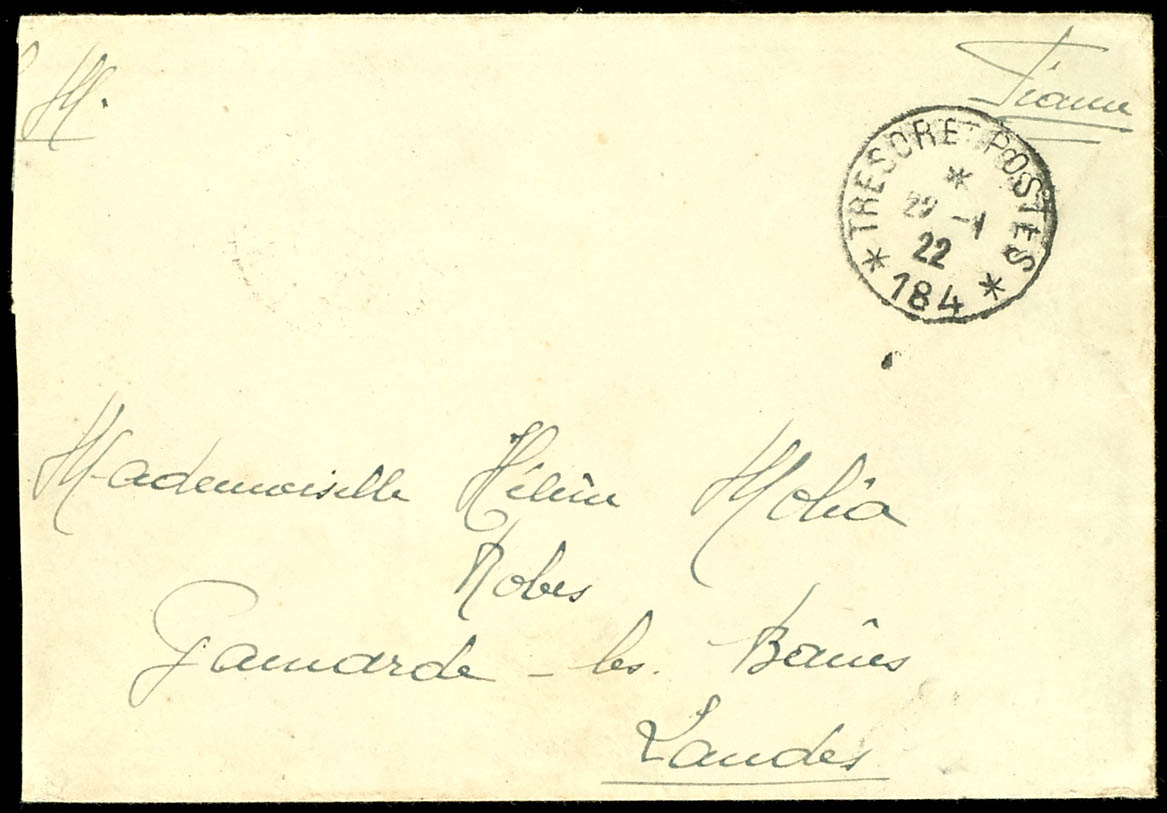 France
M.
* TRESOR ET POSTES *
*
22
184
Mademoiselle Hélène Molia
Robes
Gamarde - les. Bains
Landes